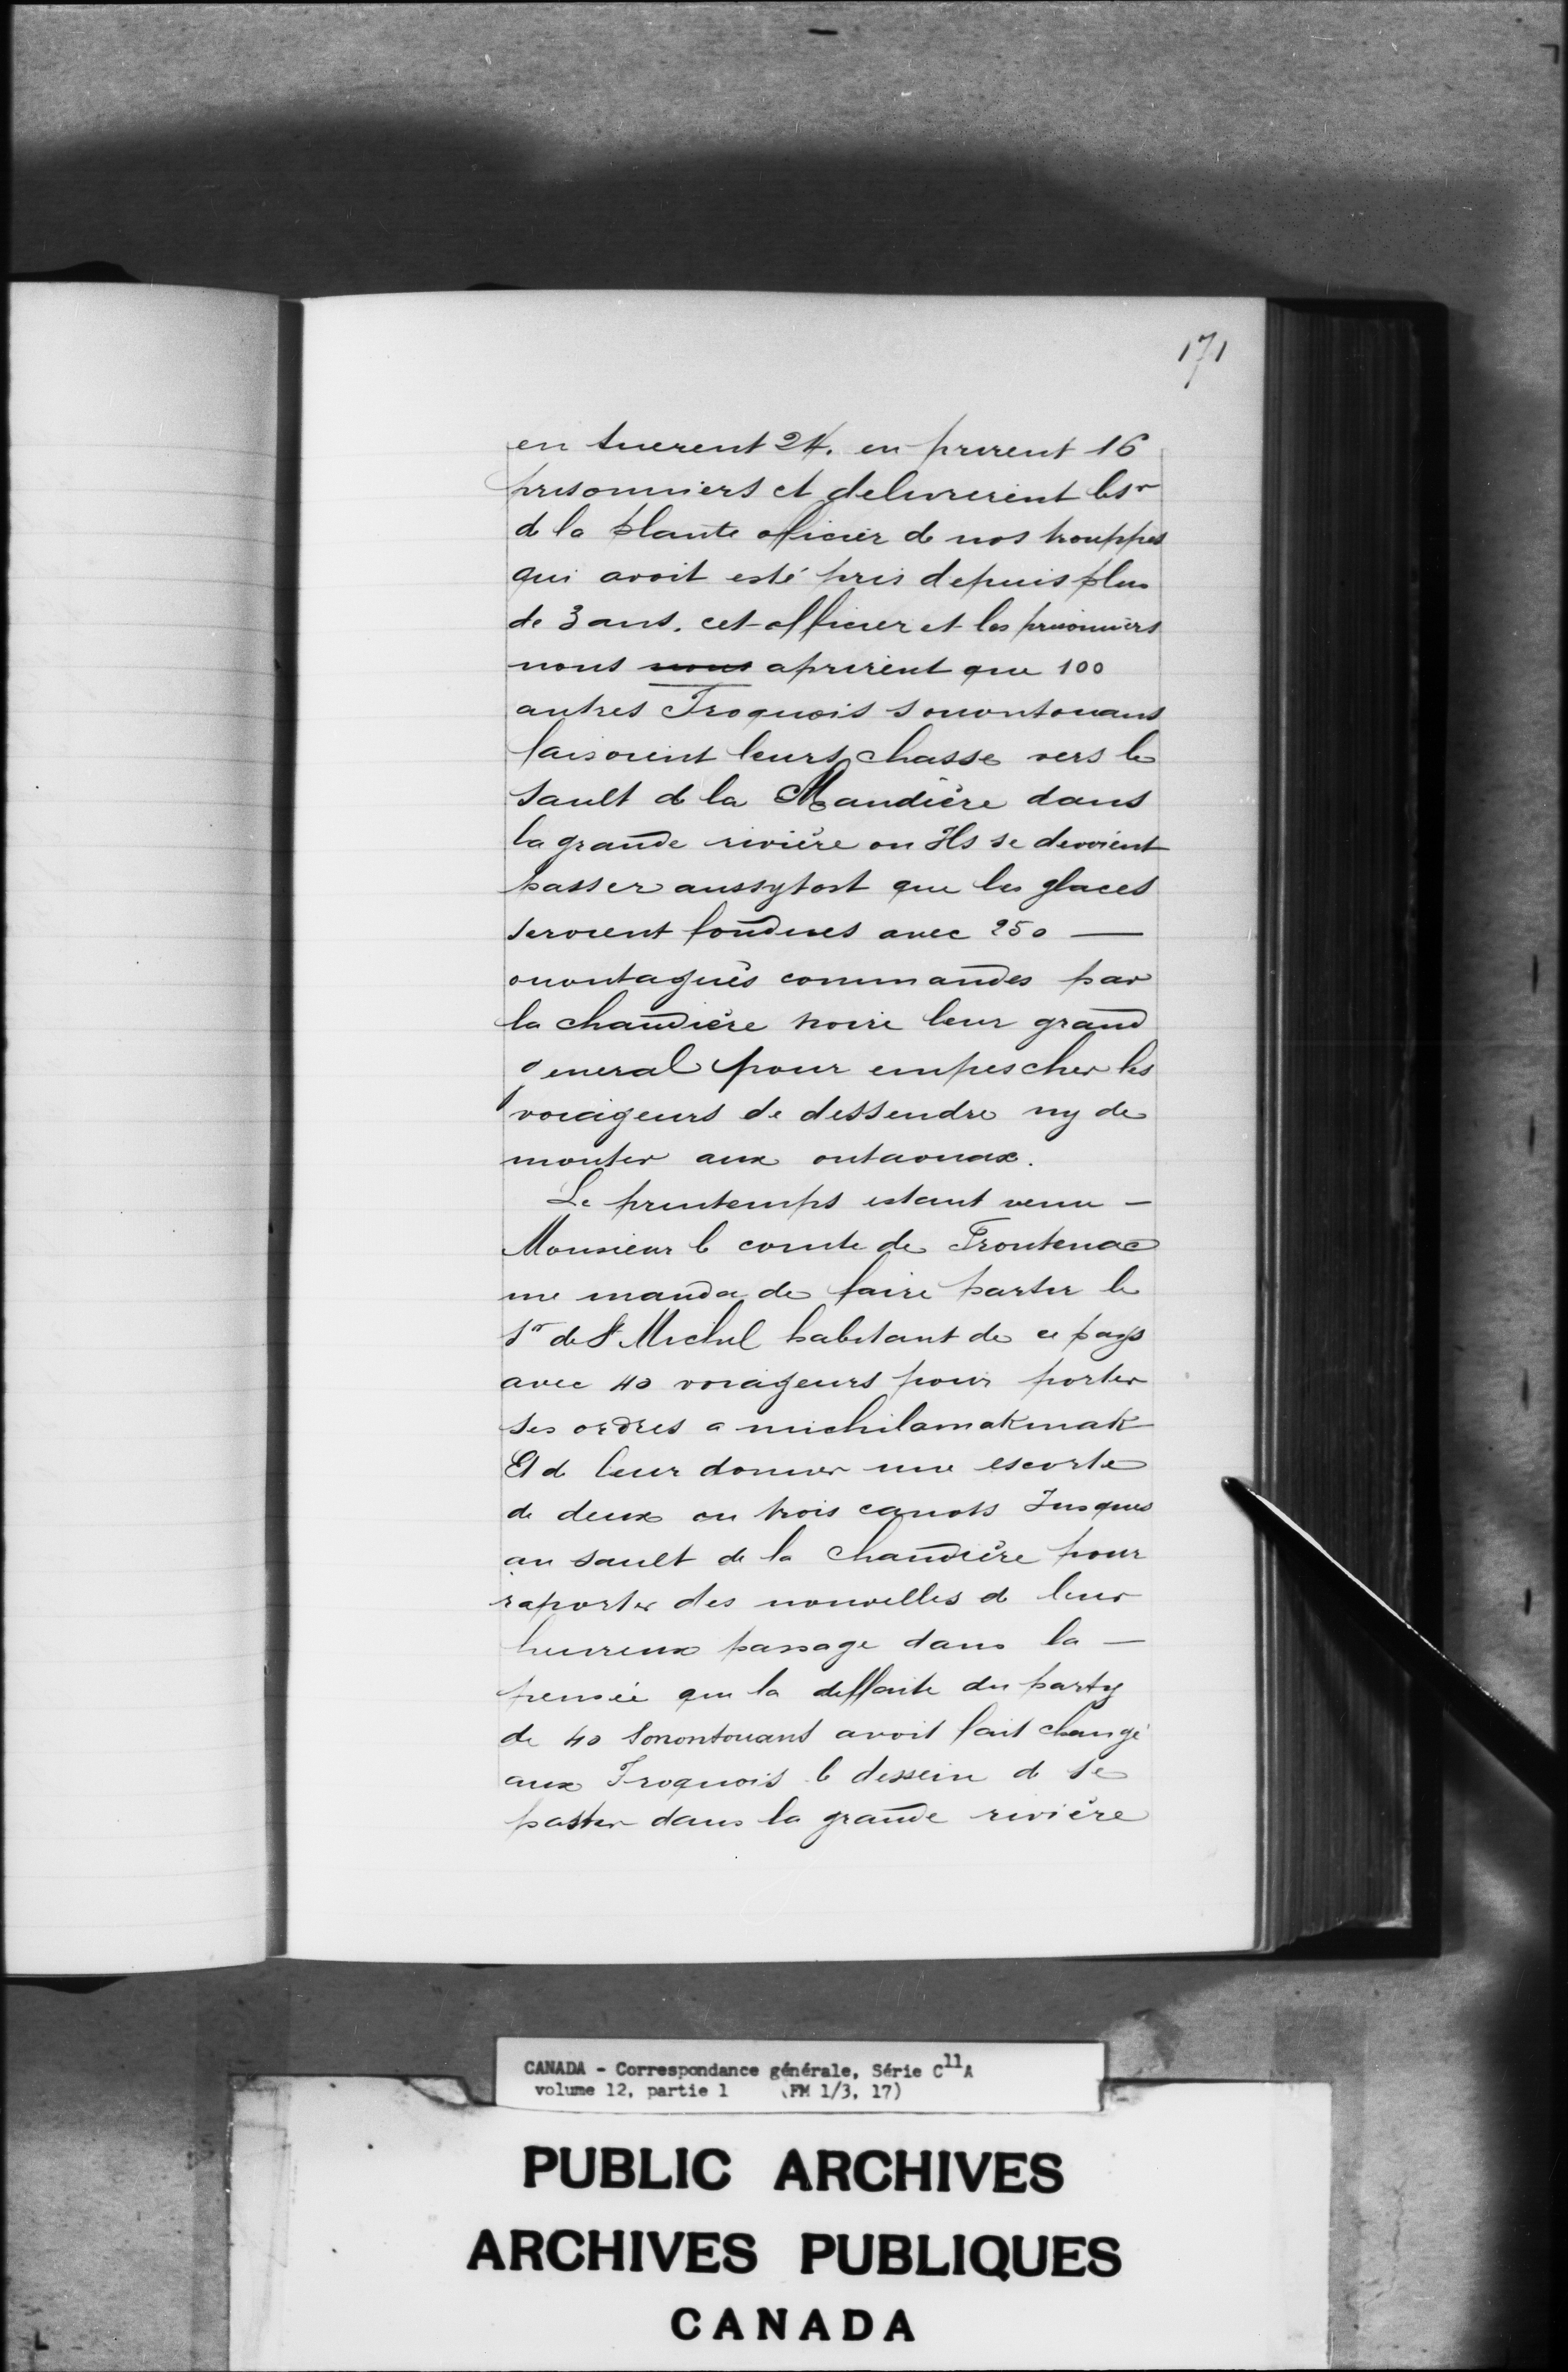 171
en tuerent 24. en prirent 16
prisonniers et delivrerent le sr
de la plante oficier de nos trouppes
qui avoit esté pris depuis plus
de 3 ans. cet officier et les prisonniers
nous nous aprirent que 100
autres Iroquois sonontouans
faisoient leurs chasse vers le
sault de la Chaudière dans
la grande rivière ou Ils se devoient
passer aussytost que les glaces
seroient fondues avec 250 —
onontagués commandes par
la chaudière noire leur grand
general pour empescher les
voiageurs de dessendre ny de
monter aux outaouax.
Le printemps estant venu —
Monsieur le comte de Frontenac
me manda de faire partir le
Sr de St Michel habitant de ce pays
avec 40 voiageurs pour porter
ses ordres a michilamakinak
Et de leur donner une escorte
de deux ou trois canots Jusques
au sault de la chaudière pour
raporter des nouvelles de leur
heureux passage dans la —
pensée que la deffaite du party
de 40 Sonontouans avoit fait changé
aux Iroquois le dessein de se
poster dans la grande rivière
CANADA - Correspondance générale, Série C11A
volume 12, partie 1 (FM 1/3, 17)
PUBLIC ARCHIVES
ARCHIVES PUBLIQUES
CANADA
L